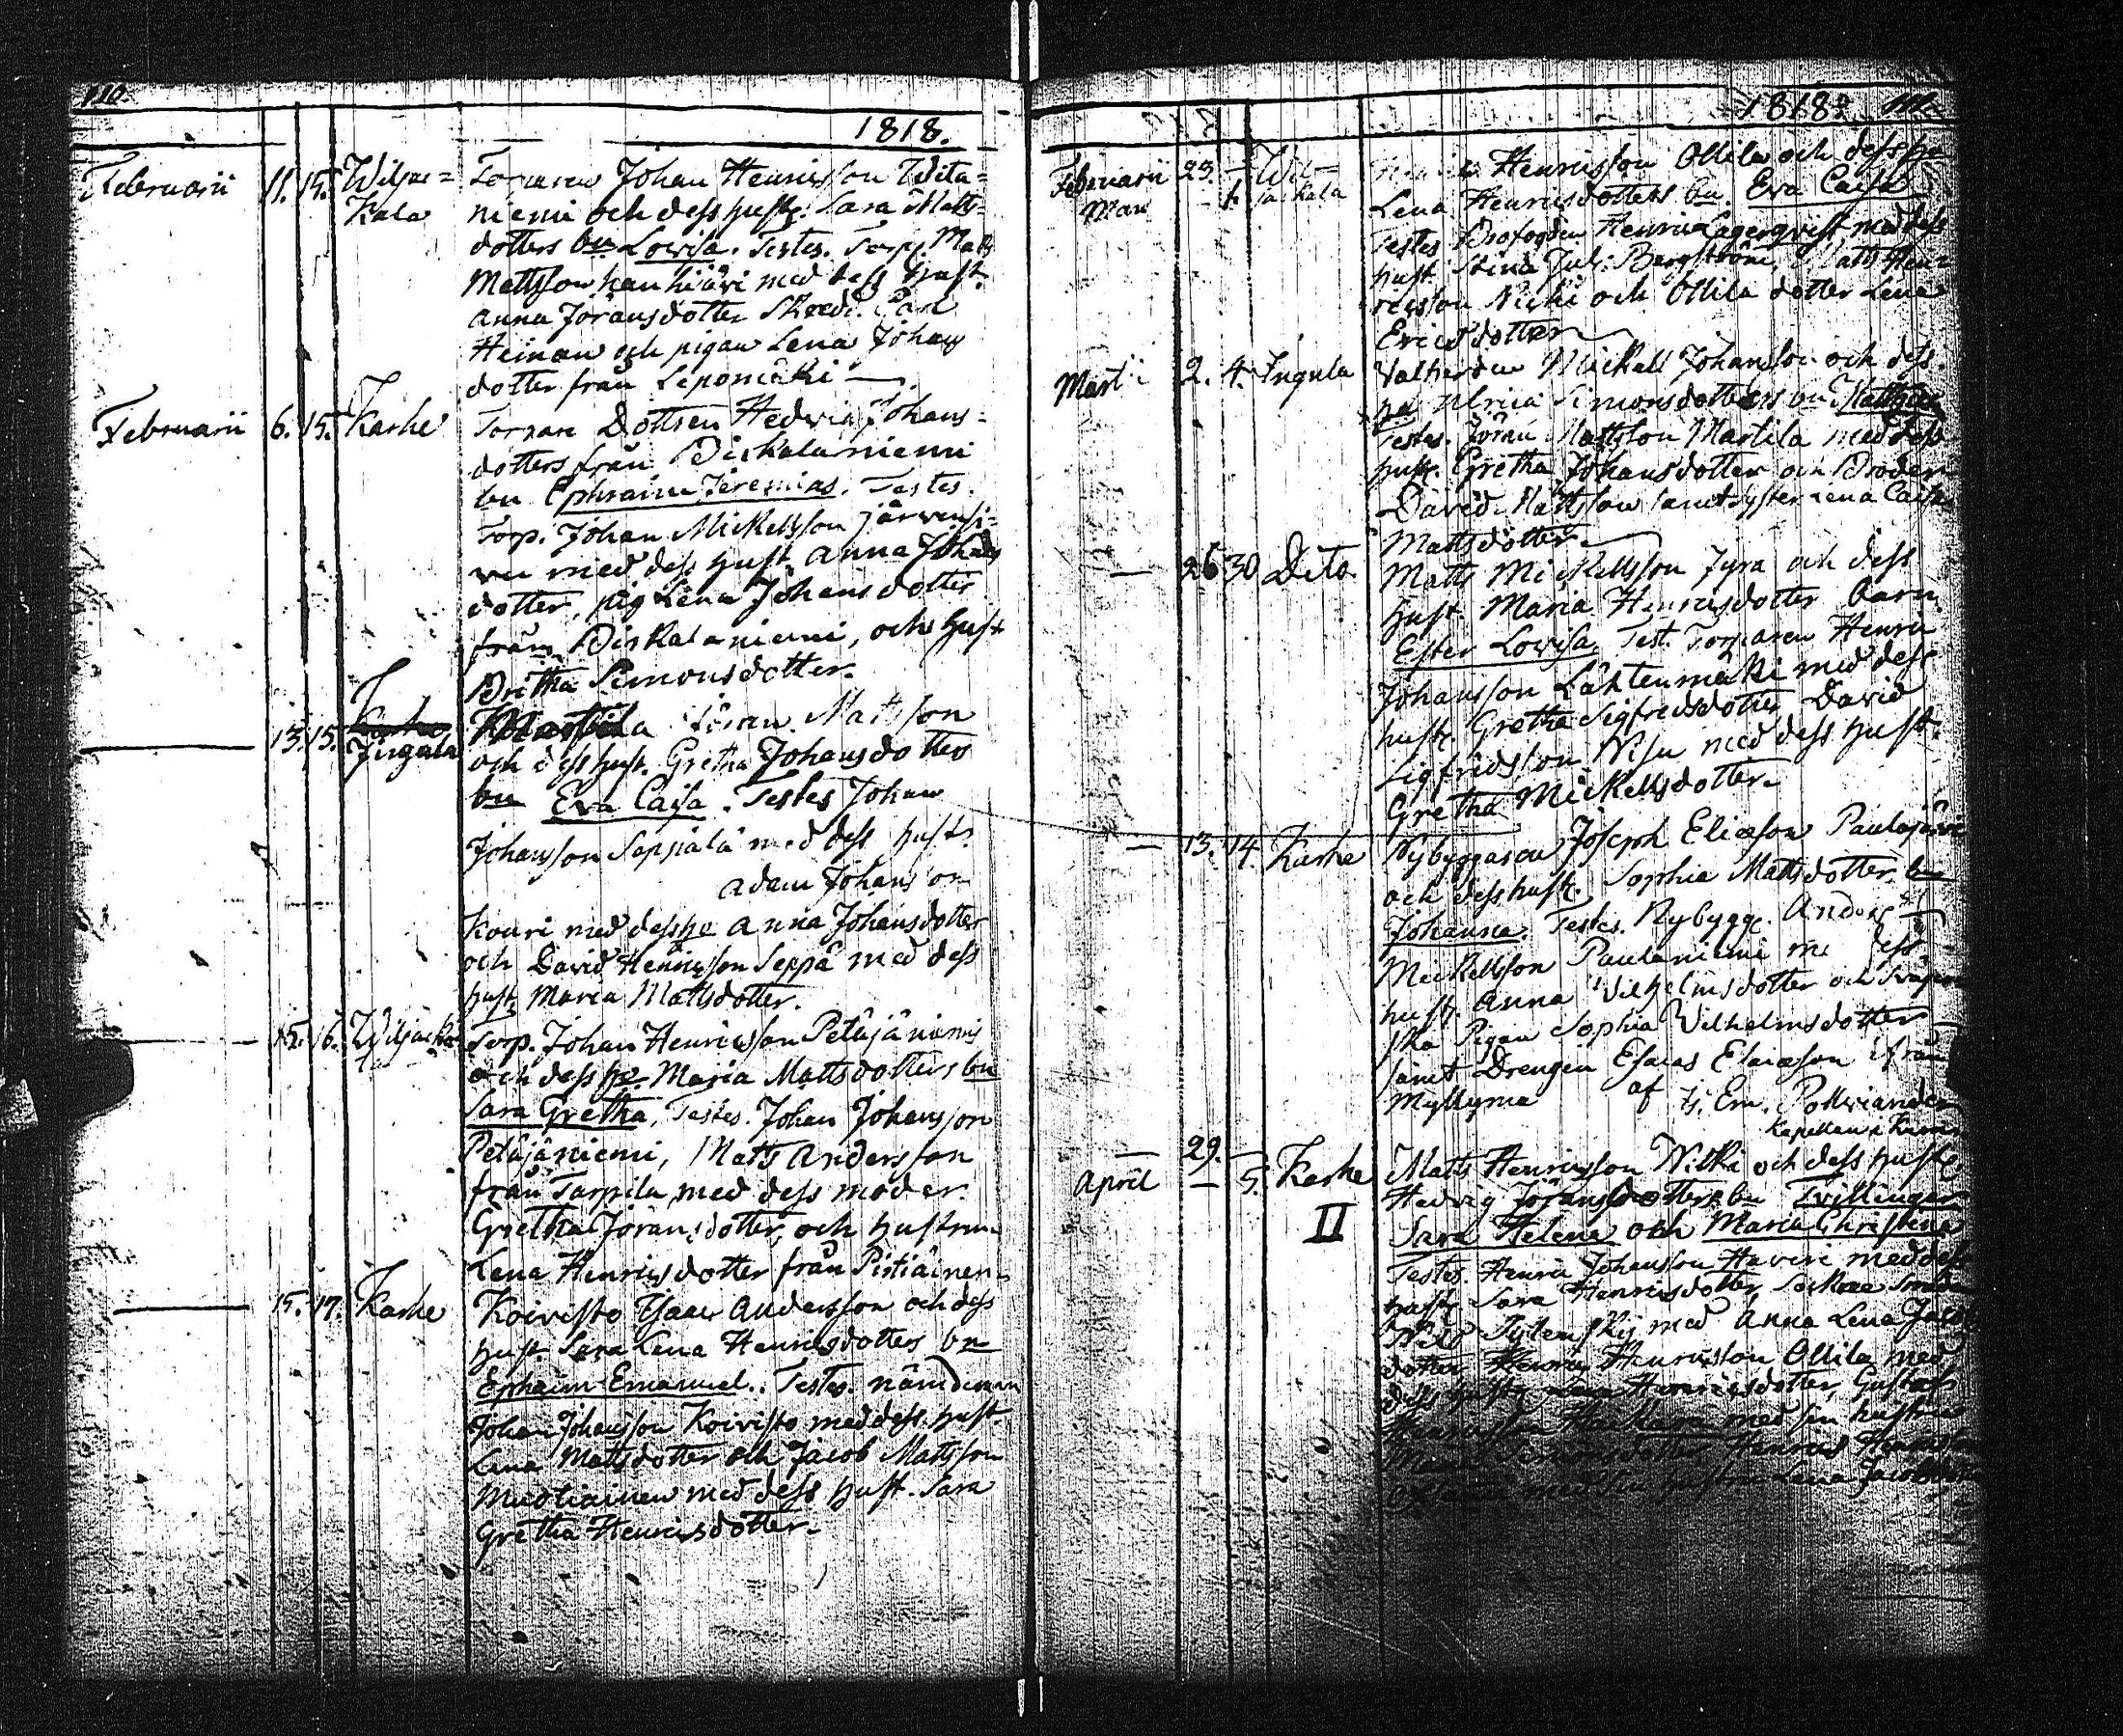 110.
1818.
Februarii 11. 15. Wiljac= Torparen Johan Henricsson Wita=
kala niemi och dess hustr. Sara Matts=
dotters bn Lovisa. Testes. Torp. Matts
Mattsson med dess hust.
Anna Jöransdotter Skredd. Carl
Heinon och pigan Lena Johans
dotter från Lepomäki
Februarii 6. 15. Karhe Torpare Dottren Hedvig Johans=
dotters från Diskalaniemi
bn Ephraim Jeremias. Testes.
Torp. Johan Mickelsson Järvensi=
vu med dess hust. Anna Johans
dotter, pig Lena Johansdotter
från Diskalaniemi, och hust
Britha Simonsdotter.
13. 15. Karhe
Jngala Martila Jöran Mattsson
och dess hust. Gretha Johansdotters
bn Eva Caisa. Testes Johan
Johansson Seppälä med dess hustr.
Adam Johansson
Kouri med dess ho Anna Johansdotter
och David Henricsson Seppä med dess
hust. Maria Mattsdotter.
15. 16. Wiljacka
la Torp. Johan Henricsson Petäjäniemis
och dess ho. Maria Mattsdotters bn
Sara Gretha. Testes. Johan Johansson
Petäjäniemi, Matts Andersson
från Tarpila med dess moder
Gretha Jöransdotter, och hustrun
Lena Henricsdotter från Pistiäinen
15. 17. Karhe Koivisto Isaac Andersson och dess
hust. Sara Lena Henricsdotters bn
Ephraim Emanuel. Testes. nämdeman
Johan Johansson Koivisto med dess hust.
Lena Mattsdotter och Jacob Mattsson
Muotiainen med dess hust. Sara
Gretha Henricsdotter.
1818. 111.
Februarii 23. Wil= Henricsson Ollila och dess ho
Mars 1. jackala Lena Henricsdotters bn. Eva Caisa
Testes Brofogden Henric Lagerqvist med dess
hust. Stina Jul. Bergström, Matts Hen
ricsson Nicki och Ollila dotter Lena
Ericsdotter
Martii 2. 4. Ingula Mickell Johansson och dess
ho Ulrica Simonsdotters bn Matthias
Testes. Jöran Mattsson Martila med dess
hustr. Gretha Johansdotter och Broder
David Mattsson samt syster Lena Caisa
Mattsdotter
26 30 Dito Matts Mickelsson Jyra och dess
hust. Maria Henricsdotter barn
Ester Lovisa. Test. Torparen Henric
Johansson Lähtenmäki med dess
hustr. Gretha Sigfredsdotter David
Sigfridsson Nisu med dess hust.
Gretha Mickelsdotter
13. 14. Karhe Nybyggaren Joseph Eliæson Paulajärvi
och dess hustr. Sophia Mattsdotter bn
Johanna. Testes. Nybygg. Anders
Mickelsson Paulaniemi med dess
hust. Anna Vilhelmsdotter och
ska Pigan Sophia Vilhelmsdotter
samt Drengen Esaias Eliæson ifrån
Myllyma af Is. Em. Pollviander
Kapellan
29. Karhe Matts Henricsson Nitki och dess hustr
April 5. Hedvig Jöransdotters bn Tvillingar
II Sara Helena och Maria Christina
Testes. Henric Johansson Haveri med dess
hustr. Sara Henricsdotter,
med Anna Lena Jacobs
dotter Henric Henricsson Ollila med
dess hustr. Lena Henricsdotter, Gustaf
Henricsson med sin hustru
Simonsdotter, Henric Henricsson
med sin hustru Lena Jacobsdotter